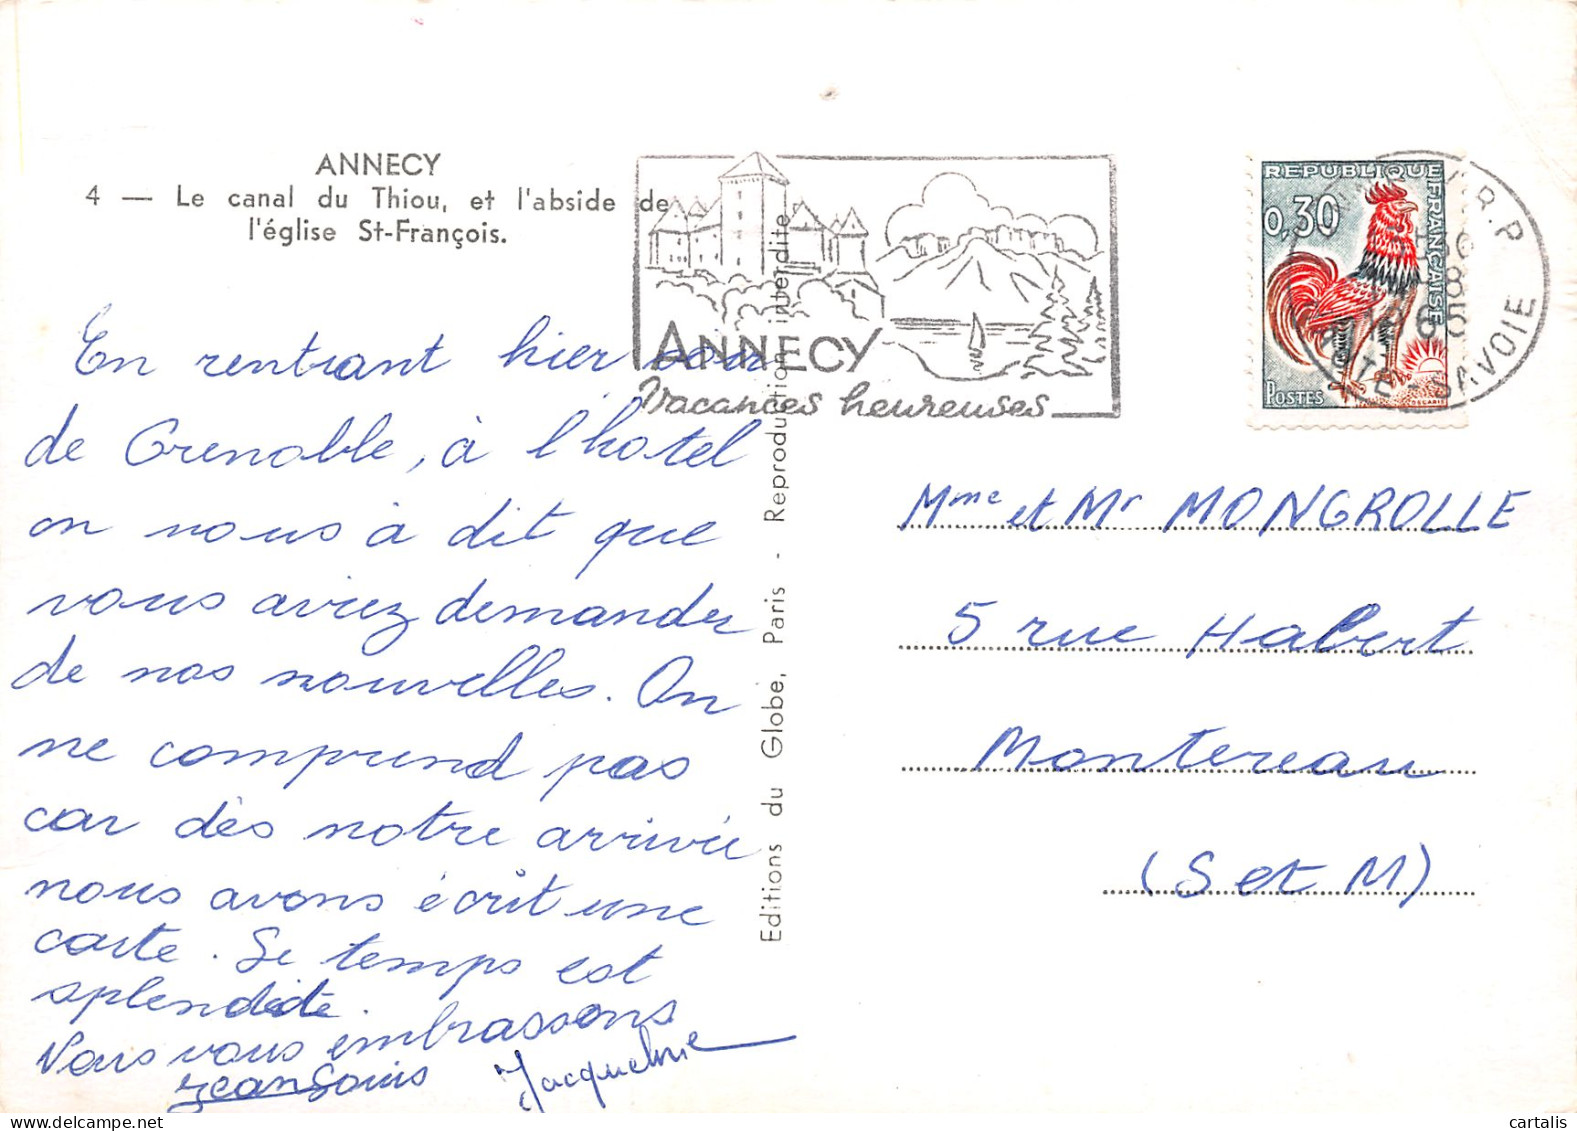 ANNECY
4 — Le canal du Thiou, et l'abside de
l'église St-François.
En rentrant hier soir
de Grenoble, à l'hotel
on nous à dit que
vous aviez demander
de nos nouvelles. On
ne comprend pas
car dès notre arrivée
nous avons écrit une
carte. Le temps est
splendide.
Nous vous embrassons
Jean Louis Jacqueline
Editions du Globe, Paris - Reproduction interdite
ANNECY
Vacances heureuses
REPUBLIQUE FRANÇAISE
0,30
POSTES
R.P
18
1965
HAUTE-SAVOIE
Mme et Mr MONGROLLE
5 rue Habert
Montereau
(S et M)
cartalis
delcampe.net